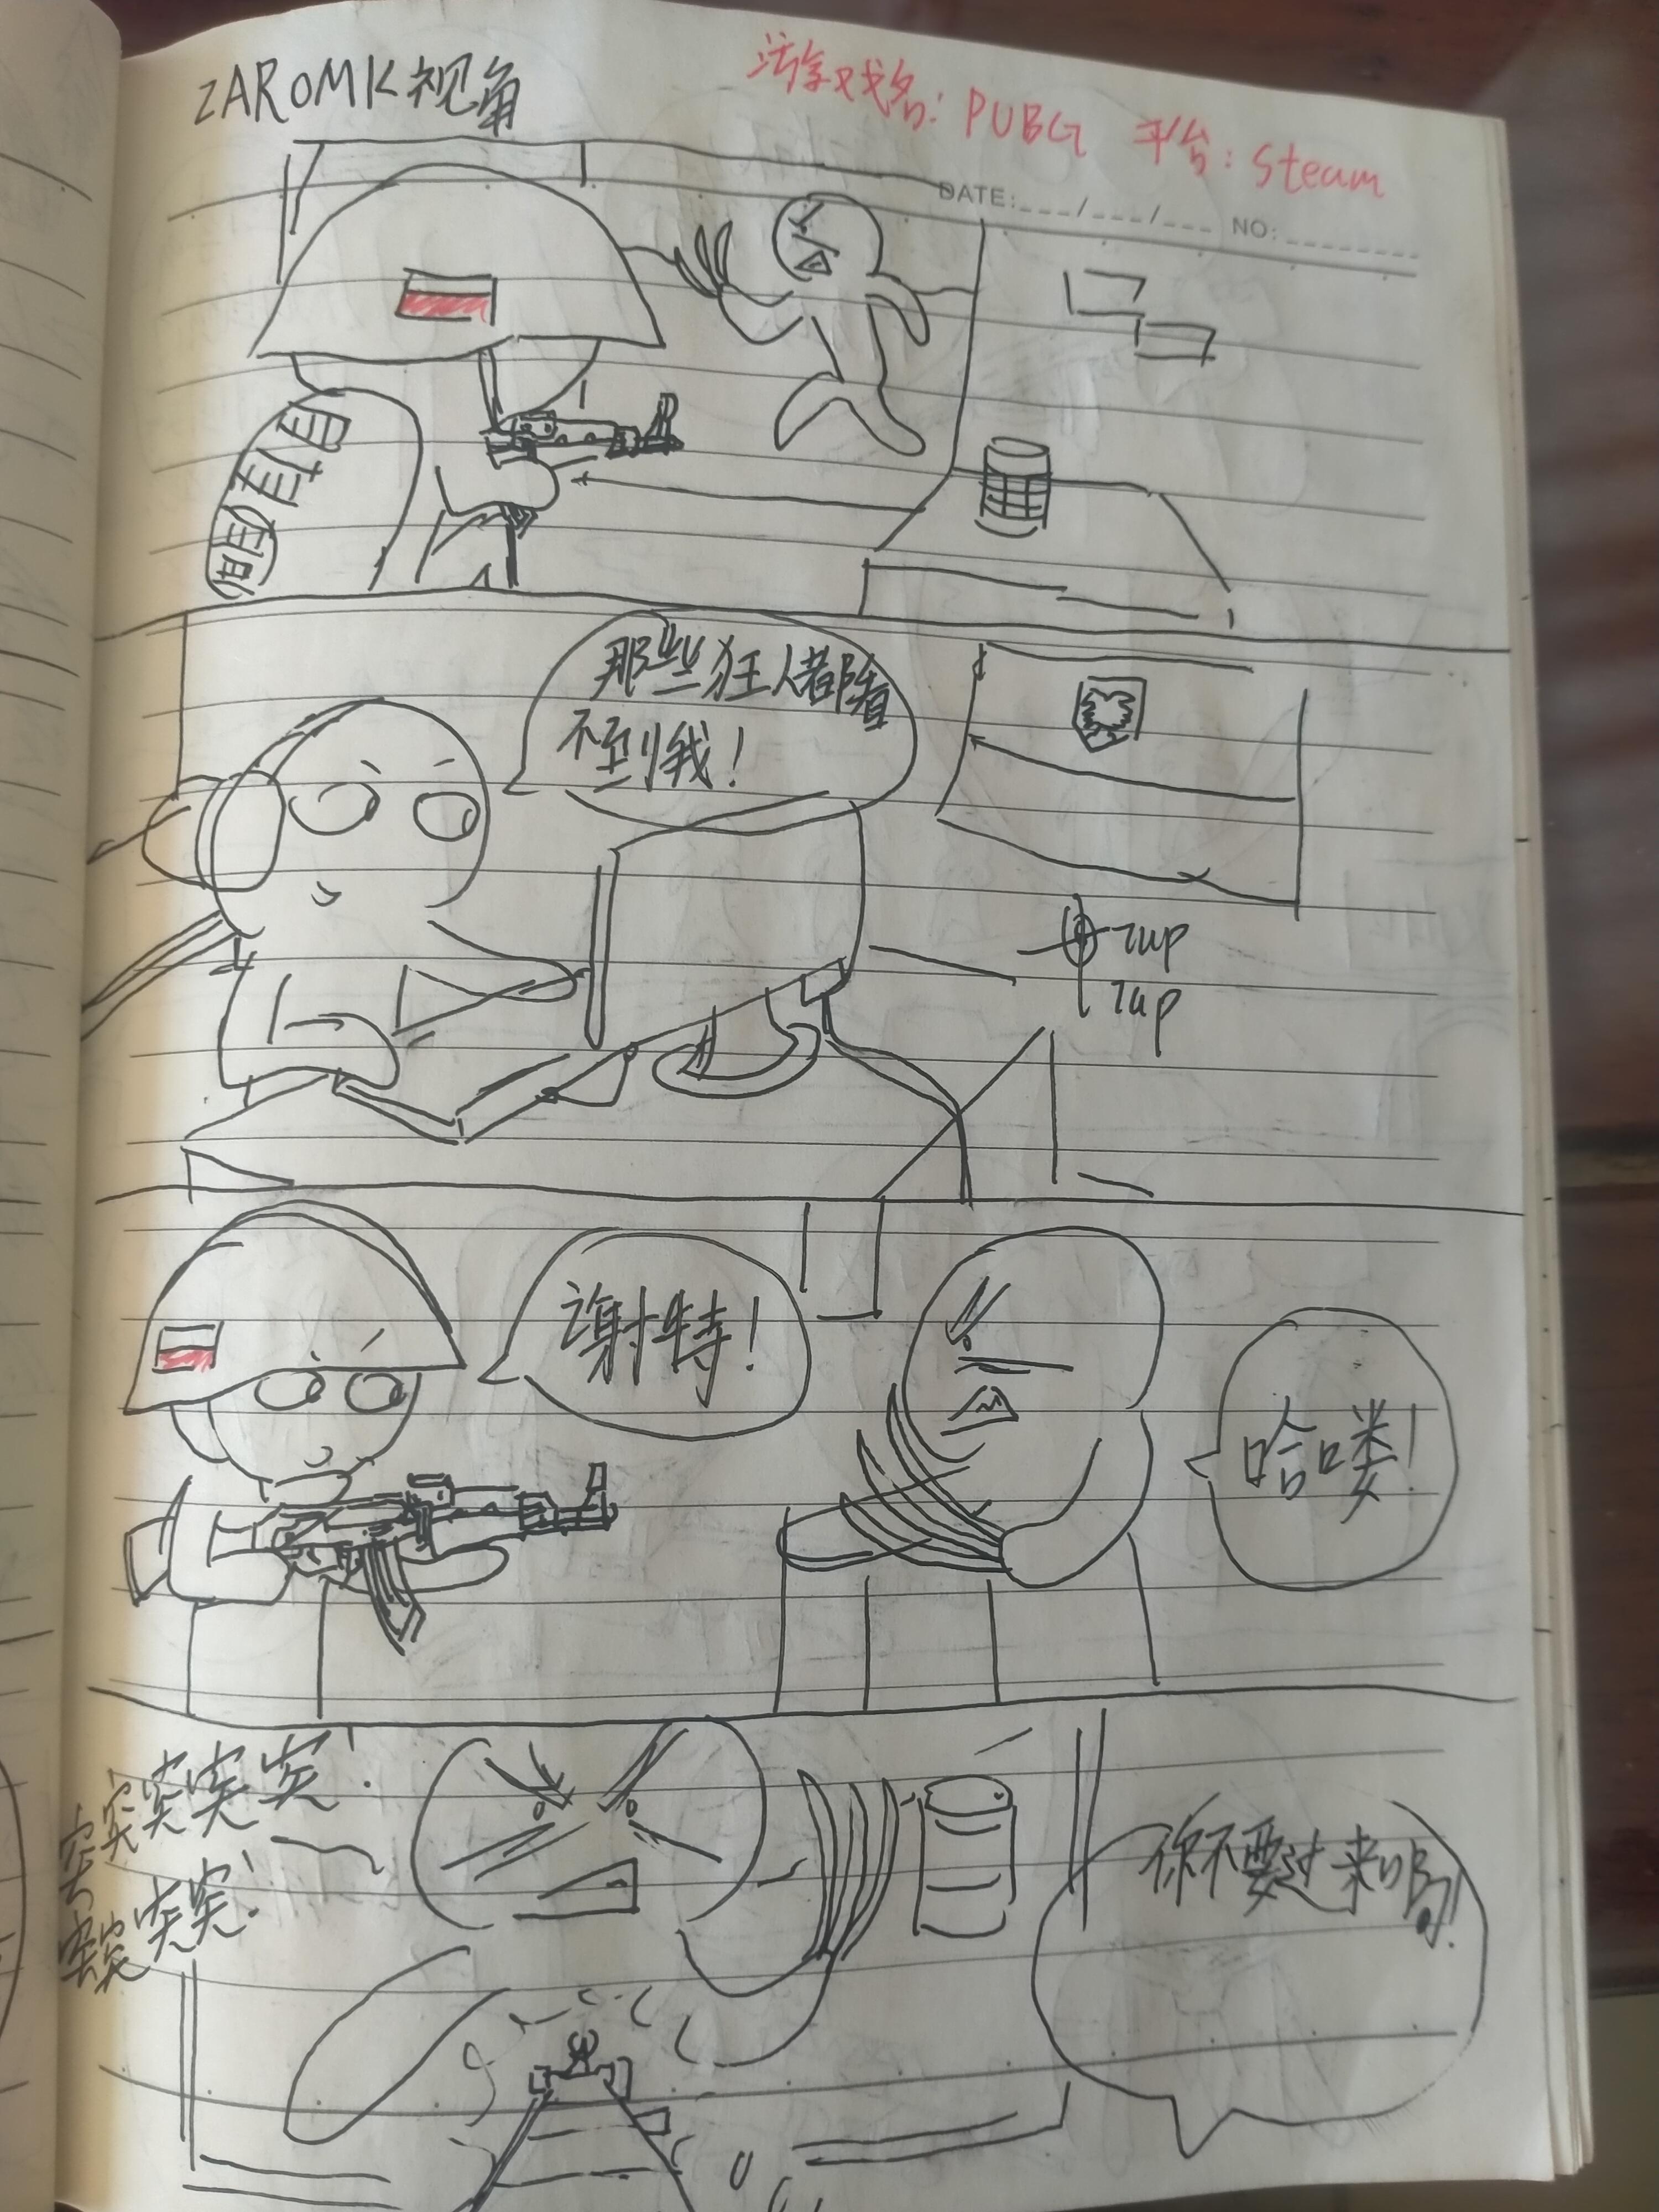 ZAROMK视角
游戏名：PUBG 平台：Steam
DATE:___/___/___ NO:________
那些狂人都看
不到我！
7up
7up
谢特！
哈喽！
突突突突突！
突突突突！
你不要过来吗！